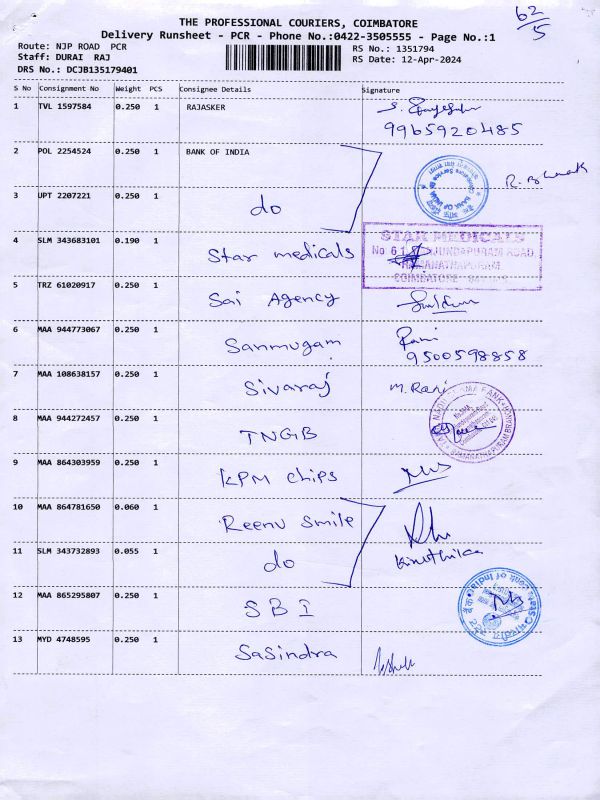 62/5
THE PROFESSIONAL COURIERS, COIMBATORE
Delivery Runsheet - PCR - Phone No.:0422-3505555 - Page No.:1
Route: NJP ROAD PCR
RS No.: 1351794
Staff: DURAI RAJ
RS Date: 12-Apr-2024
DRS No.: DCJB135179401
S No Consignment No Weight PCS Consignee Details Signature
1 TVL 1597584 0.250 1 RAJASKER
9965920485
2 POL 2254524 0.250 1 BANK OF INDIA
3 UPT 2207221 0.250 1 do
4 SLM 343683101 0.190 1 Star medicals
STAR MEDICALS
RAMANATHAPURAM
COIMBATORE
5 TRZ 61020917 0.250 1 Sai Agency
6 MAA 944773067 0.250 1 Sanmugam Rani
9500598858
7 MAA 108638157 0.250 1 Sivaraj M. Rani
8 MAA 944272457 0.250 1 TNGB
9 MAA 864303959 0.250 1 KPM chips
10 MAA 864781650 0.060 1 Reenu Smile
11 SLM 343732893 0.055 1 do
12 MAA 865295807 0.250 1 SBI
13 MYD 4748595 0.250 1 Sasindra